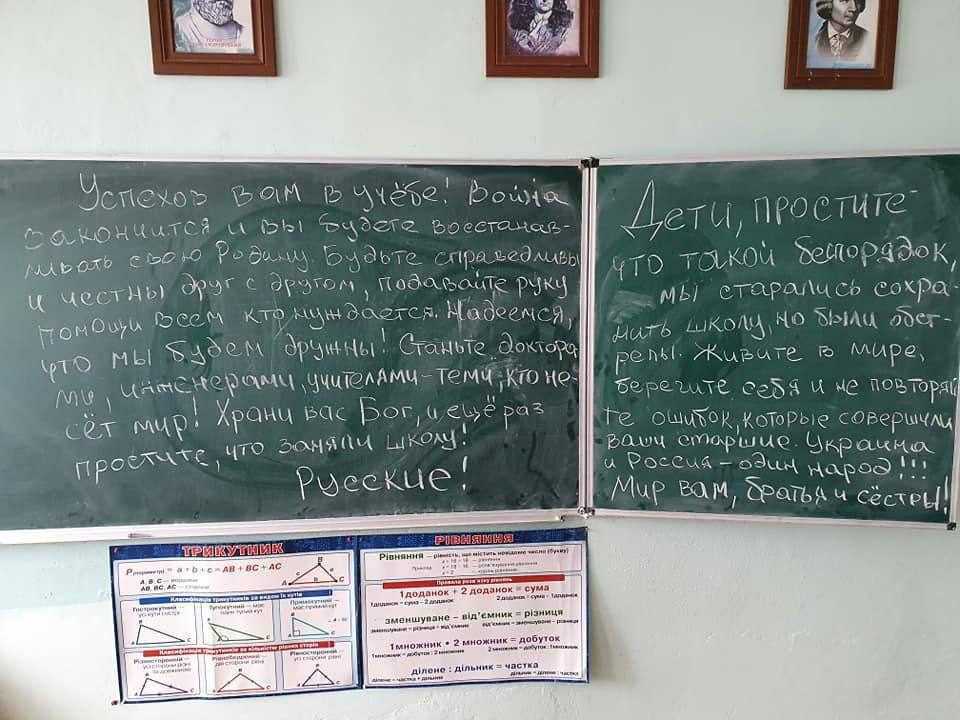 Успехов вам в учёбе! Война
закончится и вы будете восстанав-
ливать свою Родину. Будьте справедливы
и честны друг с другом, подавайте руку
помощи всем кто нуждается. Надеемся,
что мы будем дружны! Станьте доктора
ми, инженерами, учителями-теми, кто не-
сёт мир! Храни вас Бог, и ещё раз
простите, что заняли школу!
Русские!
Дети, простите
что такой беспорядок,
мы старались сохра-
нить школу, но были обст-
релы. Живите в мире,
берегите себя и не повторяй
те ошибок, которые совершили
ваши старшие. Украина
и Россия - один народ!!!
Мир вам, братья и сёстры!
ТРИКУТНИК
P(периметр) = a + b + c = AB + BC + AC
A, B, C — вершини
AB, BC, AC — сторони
B
a
c
b
A
C
Класифікація трикутників за видом їх кутів
Гострокутний —
усі кути гострі
Тупокутний — має
один тупий кут
Прямокутний —
має прямий кут
Класифікація трикутників за кількістю рівних сторін
Різносторонній —
усі сторони різні
за довжиною
Рівнобедрений —
дві сторони рівні
Рівносторонній —
усі сторони рівні
РІВНЯННЯ
Рівняння — рівність, що містить невідоме число (букву)
Правила розв'язку рівнянь
1доданок + 2 доданок = сума
1доданок = сума - 2 доданок
2 доданок = сума - 1доданок
зменшуване – від'ємник = різниця
зменшуване = різниця + від'ємник
від'ємник = зменшуване – різниця
1множник • 2 множник = добуток
1множник = добуток : 2 множник
2 множник = добуток : 1множник
ділене : дільник = частка
ділене = частка • дільник
дільник = ділене : частка